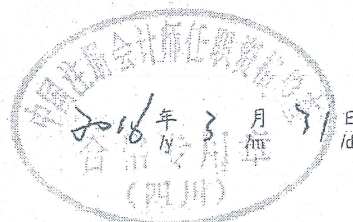 中国注册会计师任职资格检查
2016年3月31日
/y /m /d
合格专用章
(四川)